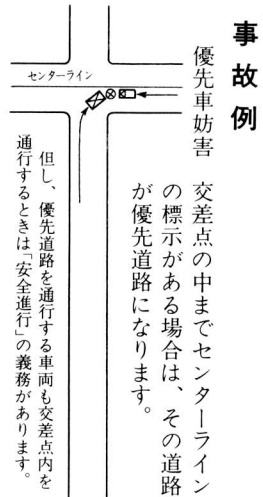 事故例
優先車妨害
交差点の中までセンターライン
の標示がある場合は、その道路
が優先道路になります。
センターライン
但し、優先道路を通行する車両も交差点内を
通行するときは「安全進行」の義務があります。